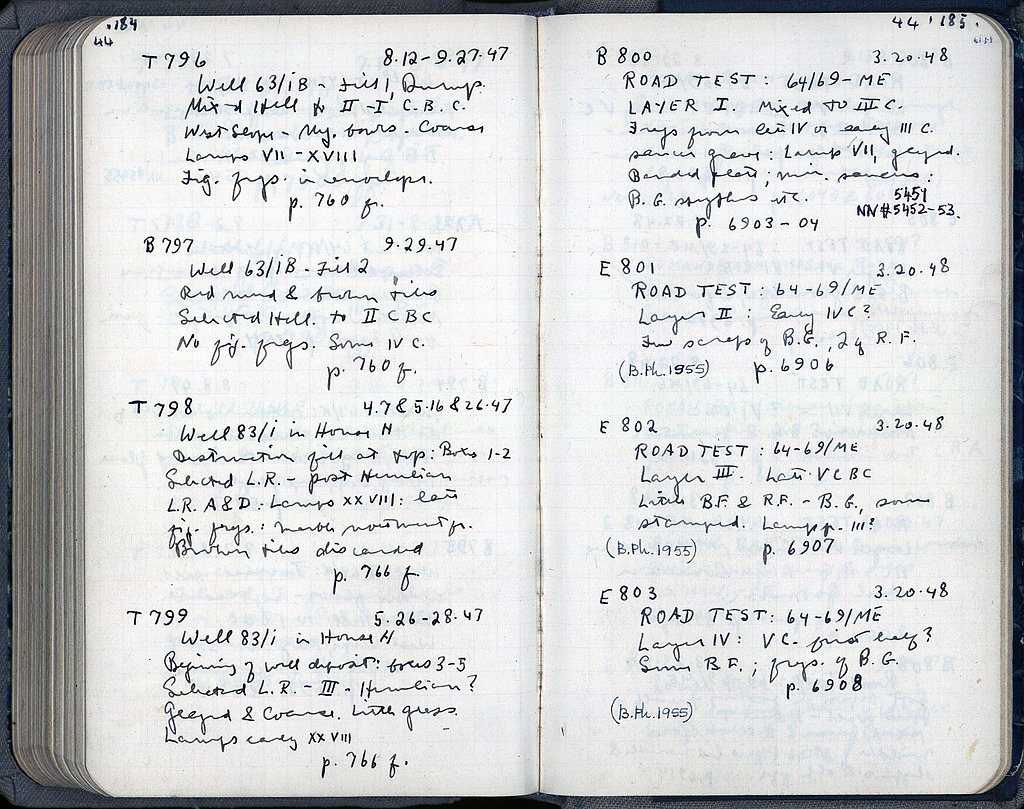 184
44
T 796 8.12-9.27.47
Well 63/1B - Fill 1, Dump.
Mixed Hell to II-I C.B.C.
West Slope - Meg. bowls. Coarse
Lamps VII - XVIII
Fig. frgs. in envelope.
p. 760 f.
B 797 9.29.47
Well 63/1B - Fill 2
Red mud & broken tiles
Selected Hell. to II C BC
No fig. frgs. Some IV C.
p. 760 f.
T 798 4.7 & 5.16 & 26.47
Well 83/1 in House H
Destruction fill at top: Boxes 1-2
Selected L.R. - post Herulian
L.R. A & D: Lamps XXVIII: late
fig. frgs.: marble
Broken tiles discarded
p. 766 f.
T 799 5.26-28.47
Well 83/1 in House H
Beginning of well deposit: boxes 3-5
Selected L.R. - III - Herulian?
Glazed & Coarse. Little glass.
Lamps early XXVIII
p. 766 f.
44 185
B 800 3.20.48
ROAD TEST: 64/69-ME
LAYER I. Mixed to III C.
Frags from late IV or early III C.
saucer grave: Lamps VII, glazed.
Banded plate; min. saucers:
B.G. etc. 5451
NN# 5452-53.
p. 6903-04
E 801 3.20.48
ROAD TEST: 64-69/ME
Layer II: Early IV C?
Few scraps of B.G., 2 of R.F.
(B.Ph.1955) p. 6906
E 802 3.20.48
ROAD TEST: 64-69/ME
Layer III. Late V C BC
Little B.F. & R.F. - B.G., some
stamped. Lamp III?
(B.Ph.1955) p. 6907
E 803 3.20.48
ROAD TEST: 64-69/ME
Layer IV: V C. first half?
Some B.F.; frgs. of B.G.
p. 6908
(B.Ph.1955)